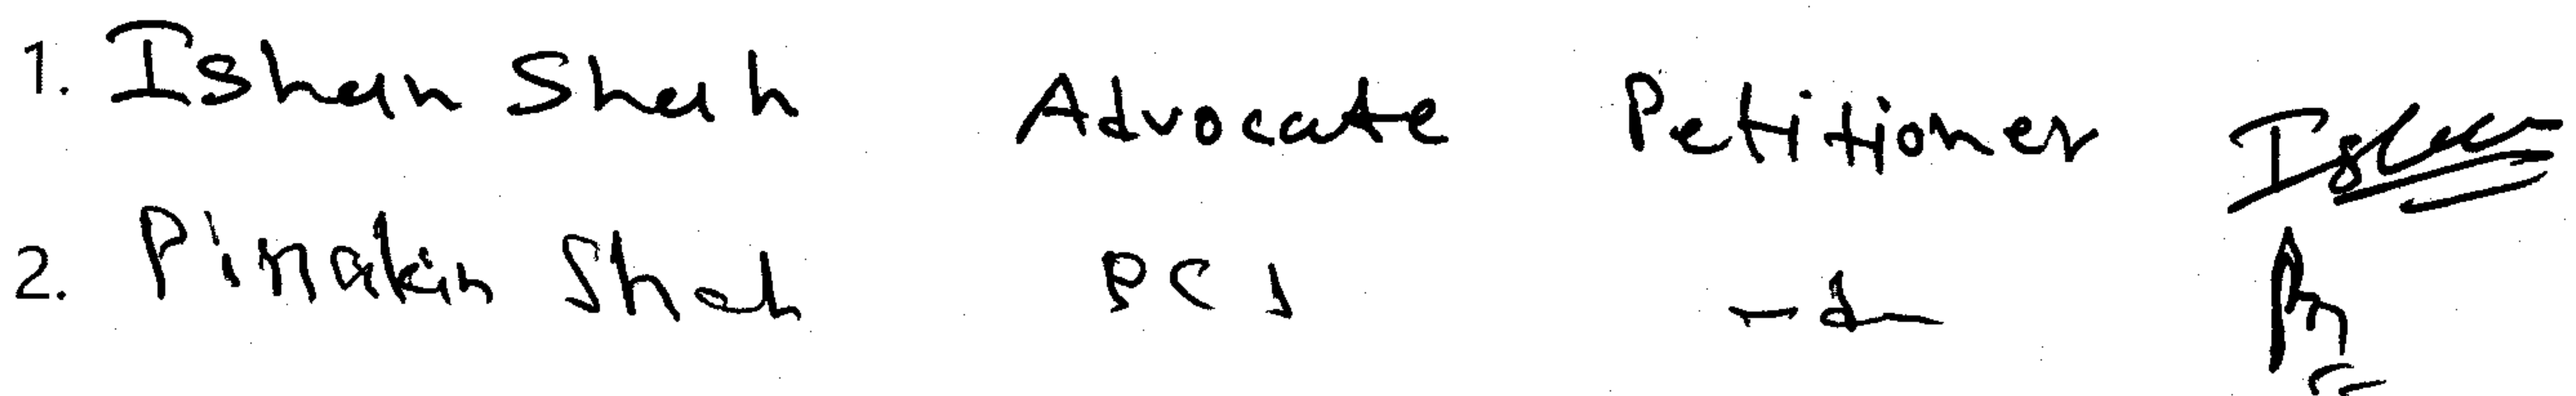 1. Ishan Shah Advocate Petitioner Ishan
2. Pinakin Shah PCS -do-